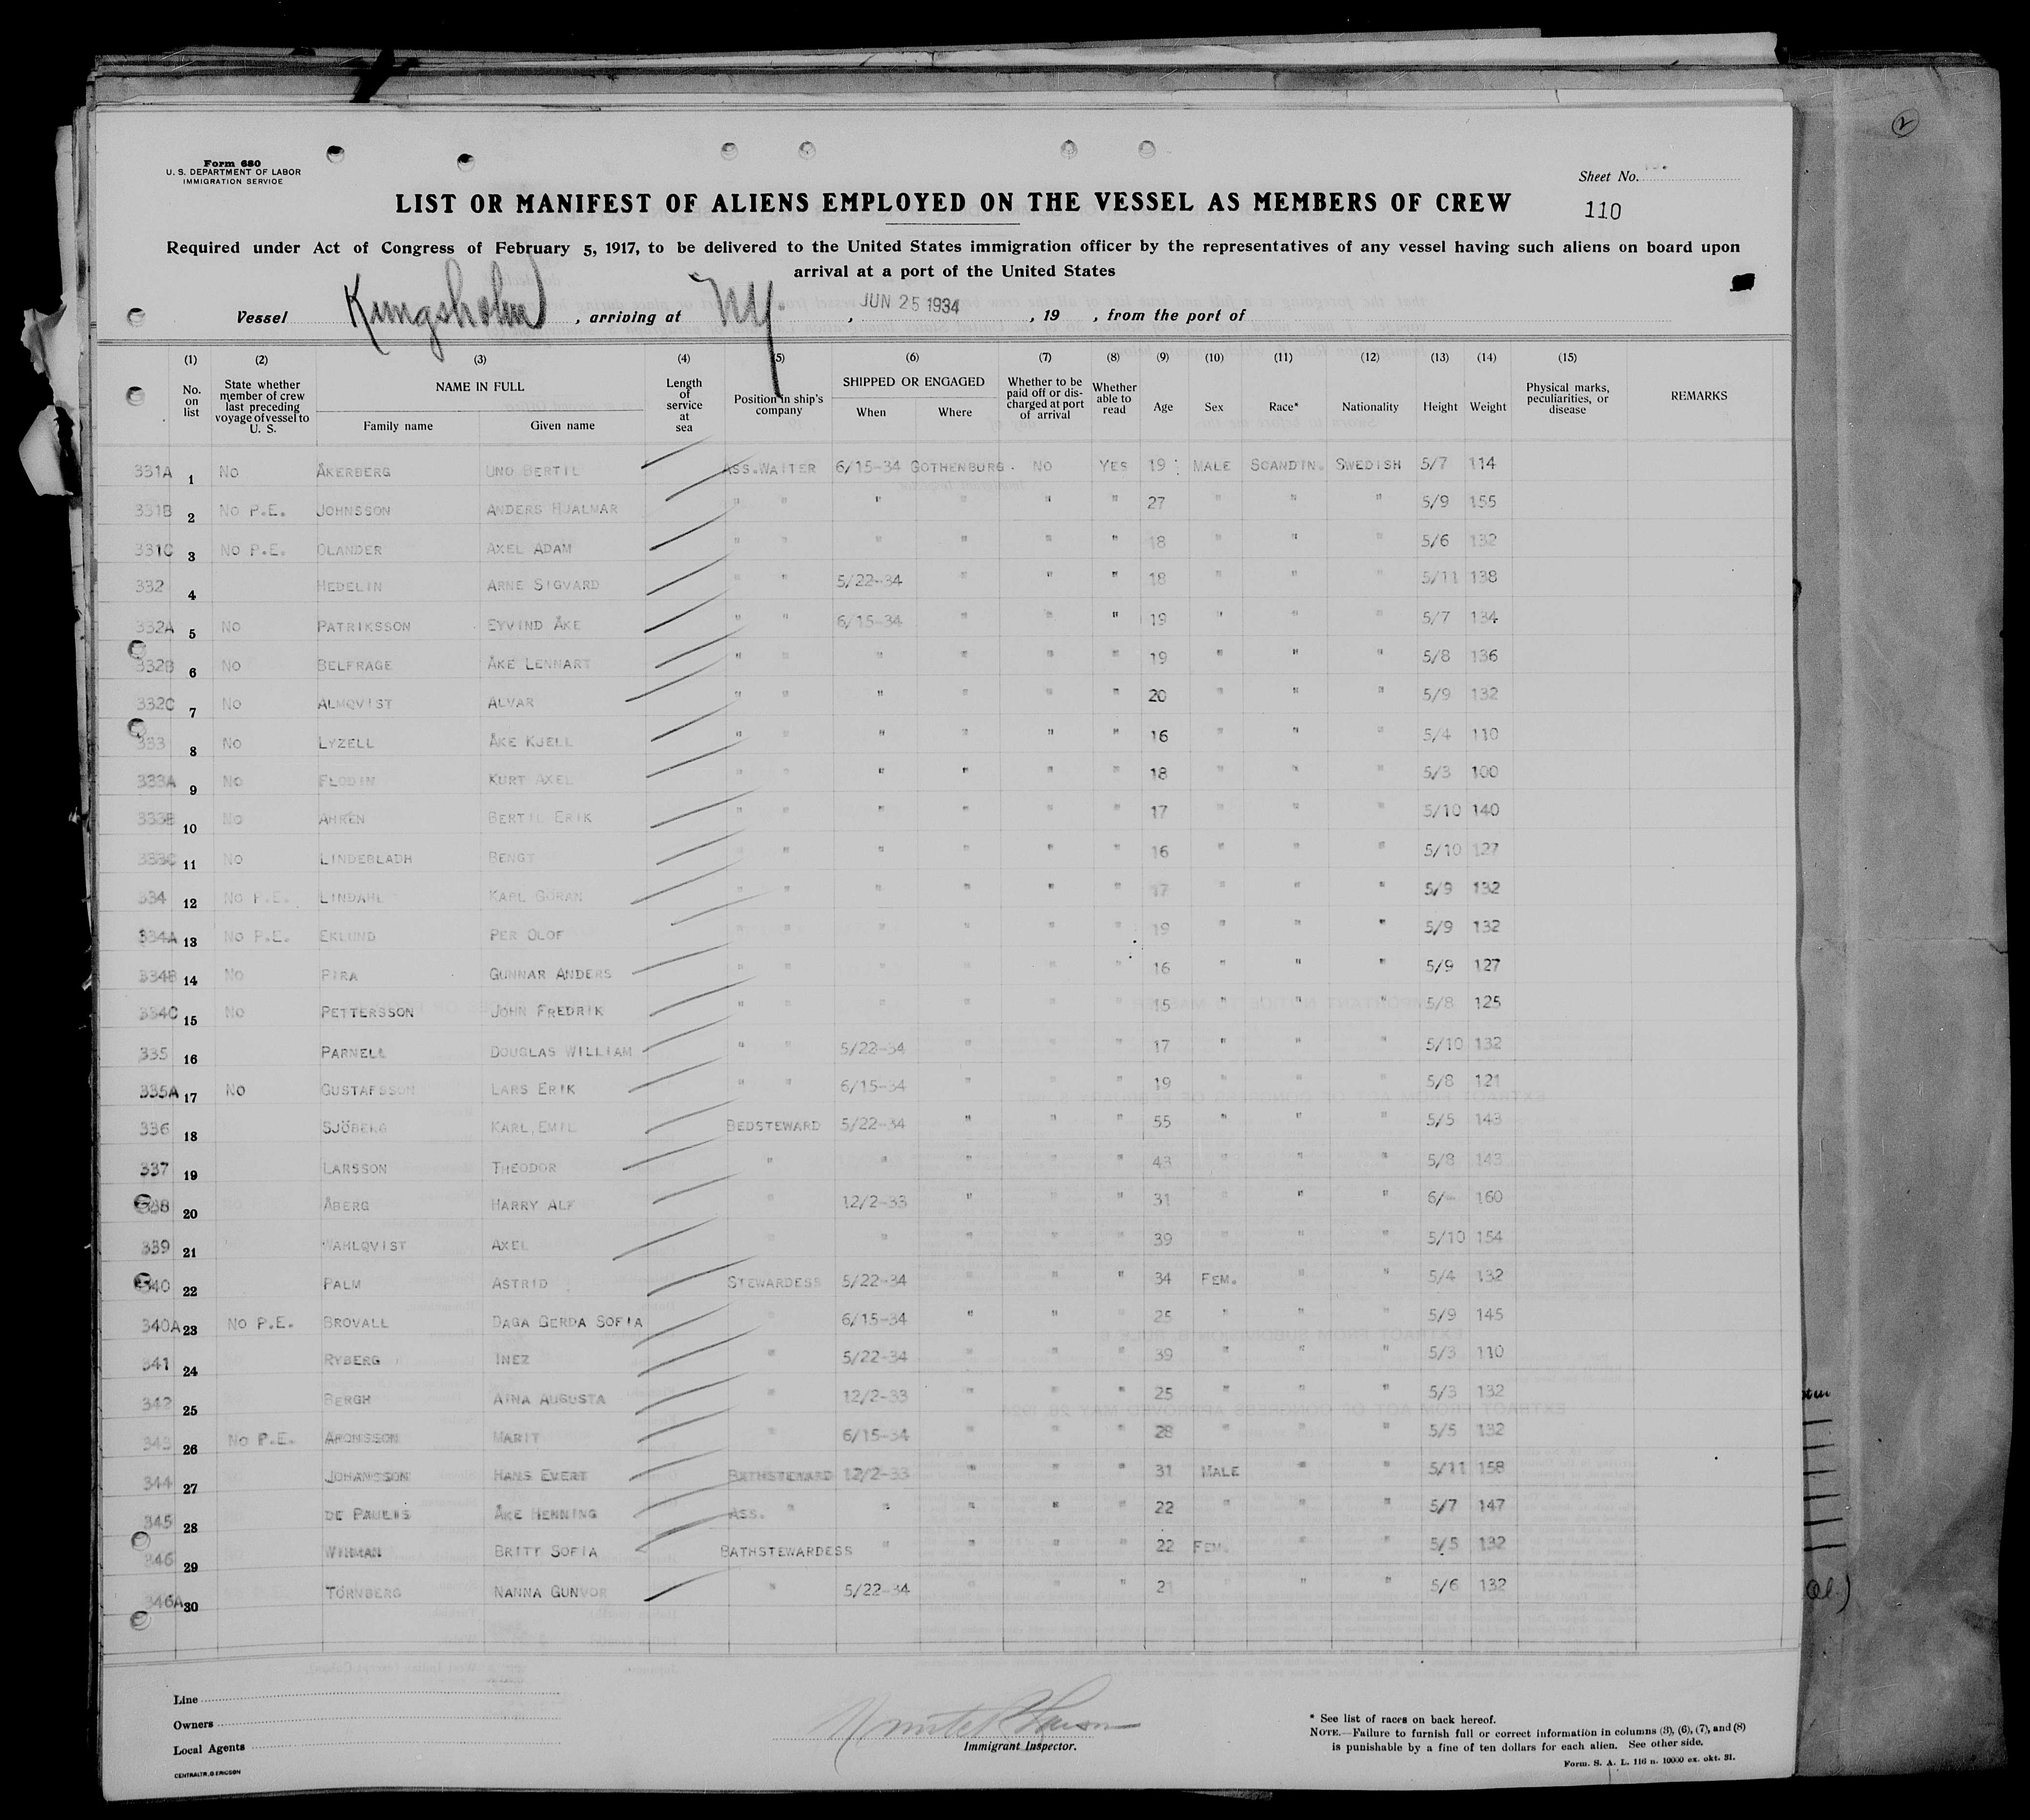 Form 680
U. S. DEPARTMENT OF LABOR
IMMIGRATION SERVICE
Sheet No.
110
LIST OR MANIFEST OF ALIENS EMPLOYED ON THE VESSEL AS MEMBERS OF CREW
Required under Act of Congress of February 5, 1917, to be delivered to the United States immigration officer by the representatives of any vessel having such aliens on board upon
arrival at a port of the United States
Vessel Kungsholm, arriving at NY., JUN 25 1934, 19 , from the port of
(1) (2) (3) (4) (5) (6) (7) (8) (9) (10) (11) (12) (13) (14) (15)
No. on list State whether member of crew last preceding voyage of vessel to U. S. NAME IN FULL Family name Given name Length of service at sea Position in ship's company SHIPPED OR ENGAGED When Where Whether to be paid off or discharged at port of arrival Whether able to read Age Sex Race* Nationality Height Weight Physical marks, peculiarities, or disease REMARKS
331A 1 NO ÅKERBERG UNO BERTIL ASS.WAITER 6/15-34 GOTHENBURG. NO YES 19 MALE SCANDIN. SWEDISH 5/7 114
331B 2 NO P.E. JOHNSSON ANDERS HJALMAR " " " " " " 27 " " " 5/9 155
331C 3 NO P.E. OLANDER AXEL ADAM " " " " " " 18 " " " 5/6 132
332 4 HEDELIN ARNE SIGVARD " " 5/22-34 " " " 18 " " " 5/11 138
332A 5 NO PATRIKSSON EYVIND ÅKE " " 6/15-34 " " " 19 " " " 5/7 134
332B 6 NO BELFRAGE ÅKE LENNART " " " " " " 19 " " " 5/8 136
332C 7 NO ALMQVIST ALVAR " " " " " " 20 " " " 5/9 132
333 8 NO LYZELL ÅKE KJELL " " " " " " 16 " " " 5/4 110
333A 9 NO FLODIN KURT AXEL " " " " " " 18 " " " 5/3 100
333B 10 NO AHRÉN BERTIL ERIK " " " " " " 17 " " " 5/10 140
333C 11 NO LINDEBLADH BENGT " " " " " " 16 " " " 5/10 127
334 12 NO P.E. LINDAHL KARL GÖRAN " " " " " " 17 " " " 5/9 132
334A 13 NO P.E. EKLUND PER OLOF " " " " " " 19 " " " 5/9 132
334B 14 NO PIRA GUNNAR ANDERS " " " " " " 16 " " " 5/9 127
334C 15 NO PETTERSSON JOHN FREDRIK " " " " " " 15 " " " 5/8 125
335 16 PARNELL DOUGLAS WILLIAM " " 5/22-34 " " " 17 " " " 5/10 132
335A 17 NO GUSTAFSSON LARS ERIK " " 6/15-34 " " " 19 " " " 5/8 121
336 18 SJÖBERG KARL EMIL BEDSTEWARD 5/22-34 " " " 55 " " " 5/5 143
337 19 LARSSON THEODOR " " " " " 43 " " " 5/8 143
338 20 ÅBERG HARRY ALF " 12/2-33 " " " 31 " " " 6/- 160
339 21 WAHLQVIST AXEL " " " " " 39 " " " 5/10 154
340 22 PALM ASTRID STEWARDESS 5/22-34 " " " 34 FEM. " " 5/4 132
340A 23 NO P.E. BROVALL DAGA GERDA SOFIA " 6/15-34 " " " 25 " " " 5/9 145
341 24 RYBERG INEZ " 5/22-34 " " " 39 " " " 5/3 110
342 25 BERGH AINA AUGUSTA " 12/2-33 " " " 25 " " " 5/3 132
343 26 NO P.E. ARONSSON MARIT " 6/15-34 " " " 28 " " " 5/5 132
344 27 JOHANSSON HANS EVERT BATHSTEWARD 12/2-33 " " " 31 MALE " " 5/11 158
345 28 DE PAULIS ÅKE HENNING ASS. " " " " " 22 " " " 5/7 147
346 29 WIHMAN BRITT SOFIA BATHSTEWARDESS " " " " 22 FEM. " " 5/5 132
346A 30 TÖRNBERG NANNA GUNVOR " 5/22-34 " " " 21 " " " 5/6 132
Line
Owners
Local Agents
CENTRALTR, G. ERICSON
Immigrant Inspector.
* See list of races on back hereof.
NOTE.—Failure to furnish full or correct information in columns (3), (6), (7), and (8)
is punishable by a fine of ten dollars for each alien. See other side.
Form. S. A. L. 116 n. 10000 ex. okt. 31.